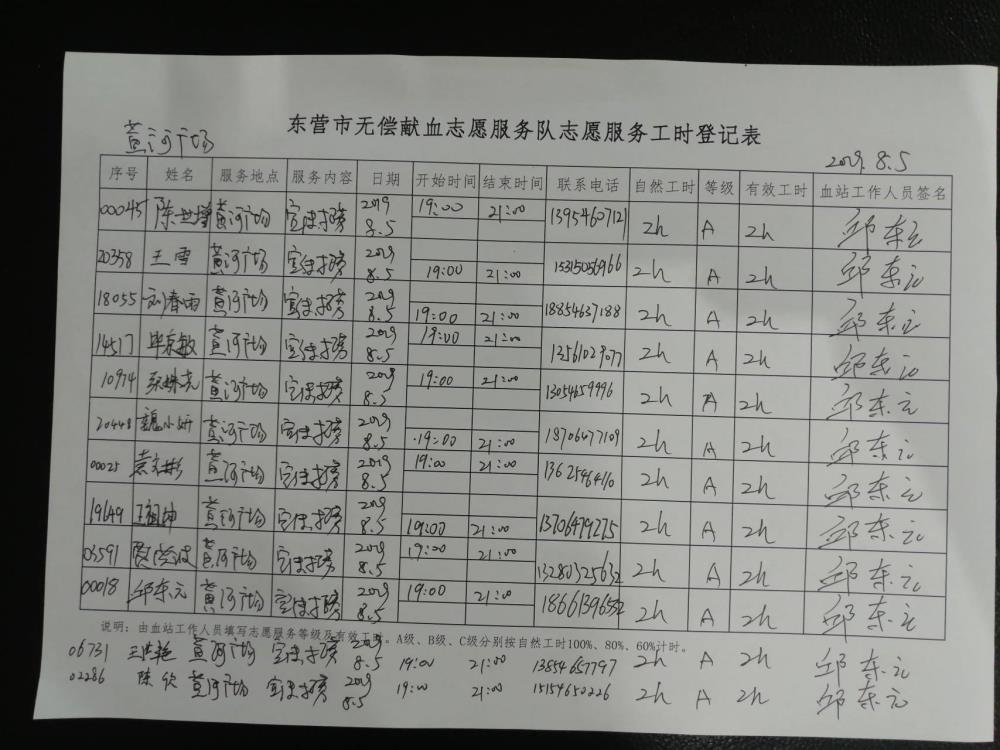 东营市无偿献血志愿服务队志愿服务工时登记表
黄河广场 2019.8.5
序号 姓名 服务地点 服务内容 日期 开始时间 结束时间 联系电话 自然工时 等级 有效工时 血站工作人员签名
00045 陈世增 黄河广场 宣传招募 2019 8.5 19:00 21:00 13954607121 2h A 2h 邱东元
20358 王雪 黄河广场 宣传招募 2019 8.5 19:00 21:00 15315056966 2h A 2h 邱东元
18055 刘春雨 黄河广场 宣传招募 2019 8.5 19:00 21:00 18854687188 2h A 2h 邱东元
14517 黄河广场 宣传招募 2019 8.5 19:00 21:00 13561029077 2h A 2h 邱东元
10974 黄河广场 宣传招募 2019 8.5 19:00 21:00 13054659996 2h A 2h 邱东元
20448 魏小妍 黄河广场 宣传招募 2019 8.5 19:00 21:00 18706477109 2h A 2h 邱东元
00025 黄河广场 宣传招募 2019 8.5 19:00 21:00 2h A 2h 邱东元
19149 黄河广场 宣传招募 2019 8.5 19:00 21:00 13706479275 2h A 2h 邱东元
03591 黄河广场 宣传招募 2019 8.5 19:00 21:00 13280325632 2h A 2h 邱东元
00018 邱东元 黄河广场 宣传招募 2019 8.5 19:00 21:00 2h A 2h 邱东元
说明：由血站工作人员填写志愿服务等级及有效工时。A级、B级、C级分别按自然工时100%、80%、60%计时。
06731 黄河广场 宣传招募 2019 8.5 19:00 21:00 13854657797 2h A 2h 邱东元
02286 陈欣 黄河广场 宣传招募 2019 8.5 19:00 21:00 15154652226 2h A 2h 邱东元